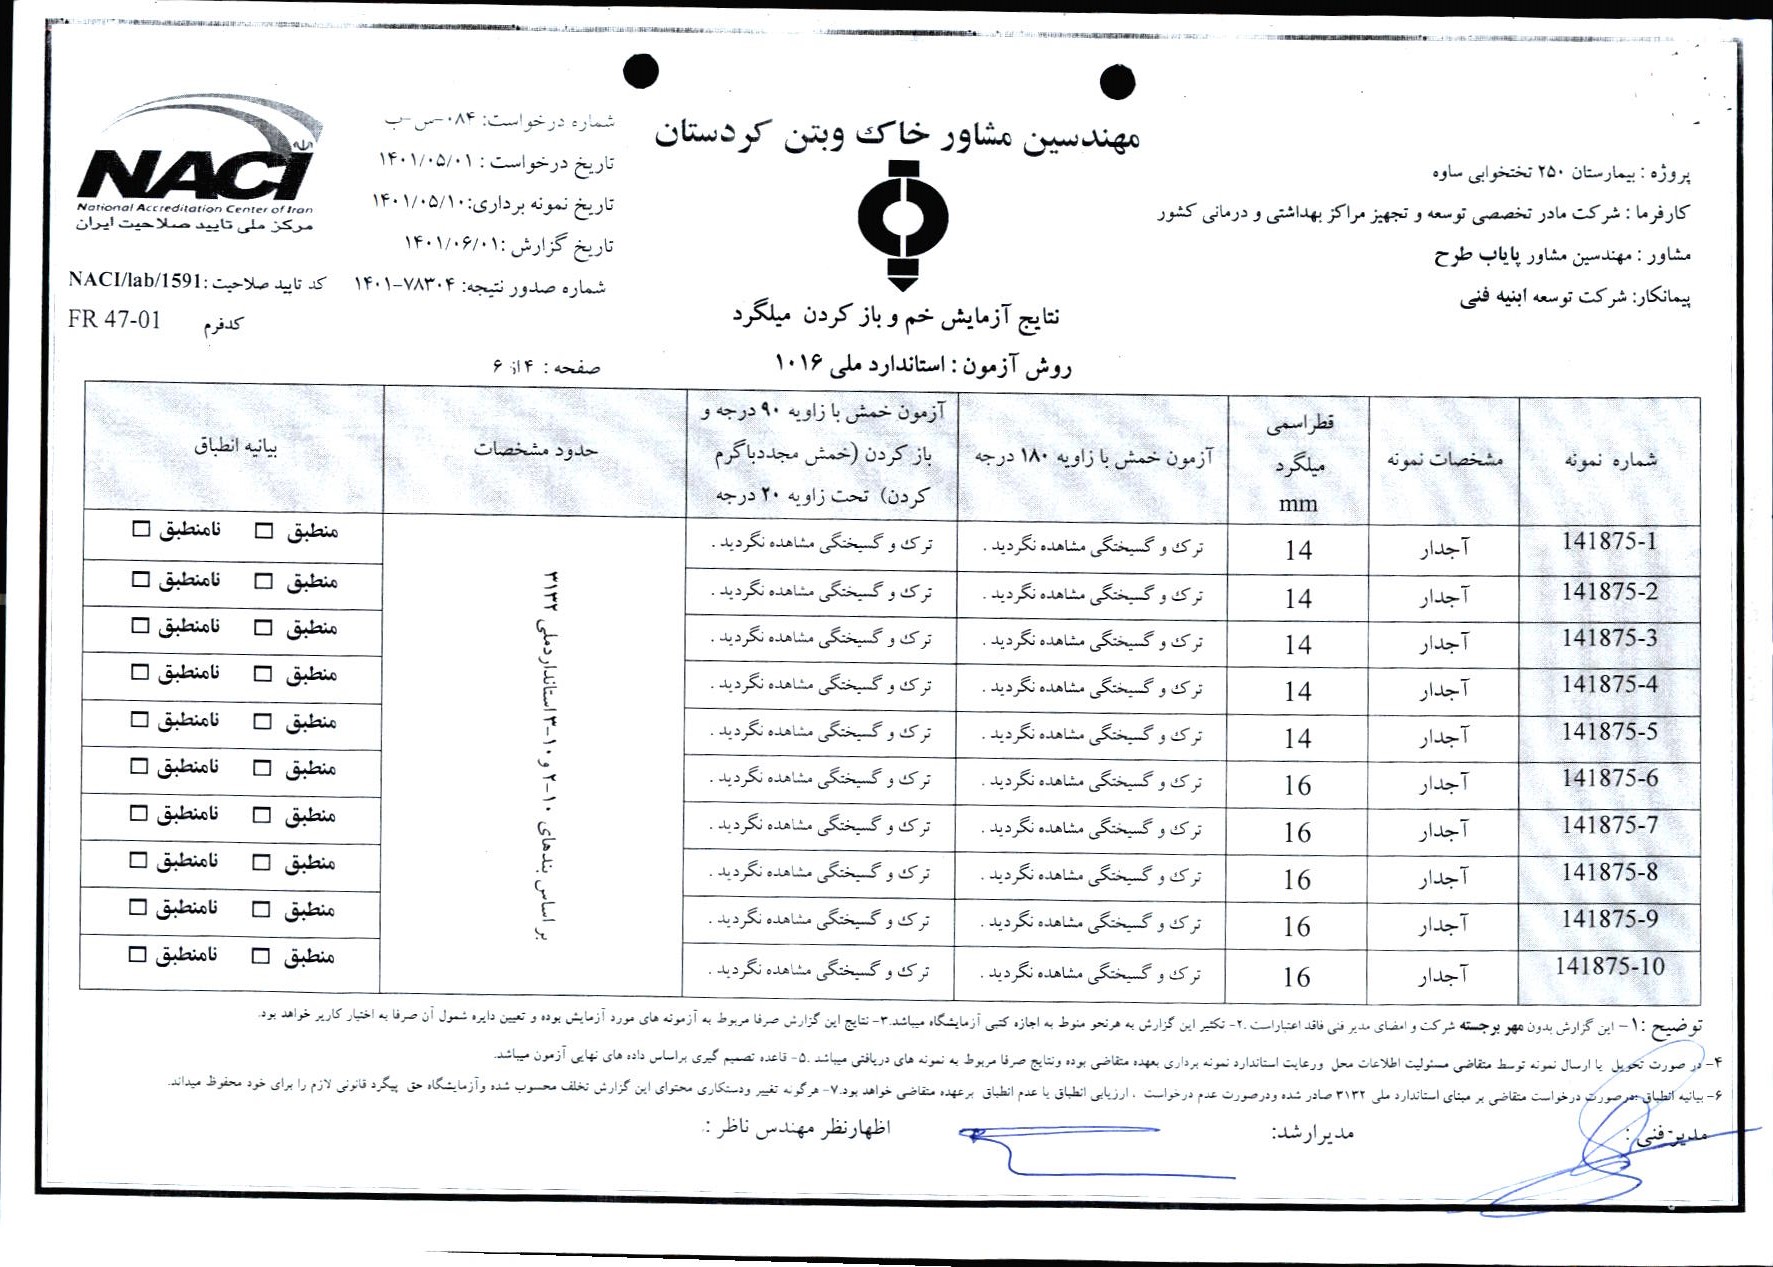 مهندسین مشاور خاک وبتن کردستان
پروژه : بیمارستان ۲۵۰ تختخوابی ساوه
کارفرما : شرکت مادر تخصصی توسعه و تجهیز مراکز بهداشتی و درمانی کشور
مشاور : مهندسین مشاور پایاب طرح
پیمانکار: شرکت توسعه ابنیه فنی
شماره درخواست: ۰۸۴-س-ب
تاریخ درخواست : ۱۴۰۱/۰۵/۰۱
تاریخ نمونه برداری: ۱۴۰۱/۰۵/۱۰
تاریخ گزارش : ۱۴۰۱/۰۶/۰۱
شماره صدور نتیجه: ۷۸۳۰۴-۱۴۰۱
NACI
National Accreditation Center of Iran
مرکز ملی تایید صلاحیت ایران
کد تایید صلاحیت :NACI/lab/1591
کدفرم FR 47-01
نتایج آزمایش خم و باز کردن میلگرد
روش آزمون : استاندارد ملی ۱۰۱۶
صفحه : ۴ از ۶
شماره نمونه	مشخصات نمونه	قطراسمی میلگرد mm	آزمون خمش با زاویه ۱۸۰ درجه	آزمون خمش با زاویه ۹۰ درجه و باز کردن (خمش مجددباگرم کردن) تحت زاویه ۲۰ درجه	حدود مشخصات	بیانیه انطباق
141875-1	آجدار	14	ترک و گسیختگی مشاهده نگردید .	ترک و گسیختگی مشاهده نگردید .	منطبق □ نامنطبق □
141875-2	آجدار	14	ترک و گسیختگی مشاهده نگردید .	ترک و گسیختگی مشاهده نگردید .	منطبق □ نامنطبق □
141875-3	آجدار	14	ترک و گسیختگی مشاهده نگردید .	ترک و گسیختگی مشاهده نگردید .	منطبق □ نامنطبق □
141875-4	آجدار	14	ترک و گسیختگی مشاهده نگردید .	ترک و گسیختگی مشاهده نگردید .	منطبق □ نامنطبق □
141875-5	آجدار	14	ترک و گسیختگی مشاهده نگردید .	ترک و گسیختگی مشاهده نگردید .	منطبق □ نامنطبق □
141875-6	آجدار	16	ترک و گسیختگی مشاهده نگردید .	ترک و گسیختگی مشاهده نگردید .	منطبق □ نامنطبق □
141875-7	آجدار	16	ترک و گسیختگی مشاهده نگردید .	ترک و گسیختگی مشاهده نگردید .	منطبق □ نامنطبق □
141875-8	آجدار	16	ترک و گسیختگی مشاهده نگردید .	ترک و گسیختگی مشاهده نگردید .	منطبق □ نامنطبق □
141875-9	آجدار	16	ترک و گسیختگی مشاهده نگردید .	ترک و گسیختگی مشاهده نگردید .	منطبق □ نامنطبق □
141875-10	آجدار	16	ترک و گسیختگی مشاهده نگردید .	ترک و گسیختگی مشاهده نگردید .	منطبق □ نامنطبق □
بر اساس بندهای ۱۰-۲ و ۱۰-۳ استانداردملی ۳۱۳۲
توضیح :۱- این گزارش بدون مهر برجسته شرکت و امضای مدیر فنی فاقد اعتباراست .۲- تکثیر این گزارش به هرنحو منوط به اجازه کتبی آزمایشگاه میباشد.۳- نتایج این گزارش صرفا مربوط به آزمونه های مورد آزمایش بوده و تعیین دایره شمول آن صرفا به اختیار کاربر خواهد بود.
۴- در صورت تحویل یا ارسال نمونه توسط متقاضی مسئولیت اطلاعات محل ورعایت استاندارد نمونه برداری بعهده متقاضی بوده ونتایج صرفا مربوط به نمونه های دریافتی میباشد .۵- قاعده تصمیم گیری براساس داده های نهایی آزمون میباشد.
۶- بیانیه انطباق :درصورت درخواست متقاضی بر مبنای استاندارد ملی ۳۱۳۲ صادر شده ودرصورت عدم درخواست ، ارزیابی انطباق یا عدم انطباق برعهده متقاضی خواهد بود.۷- هرگونه تغییر ودستکاری محتوای این گزارش تخلف محسوب شده وآزمایشگاه حق پیگرد قانونی لازم را برای خود محفوظ میداند.
مدیر فنی :	مدیرارشد:	اظهارنظر مهندس ناظر :